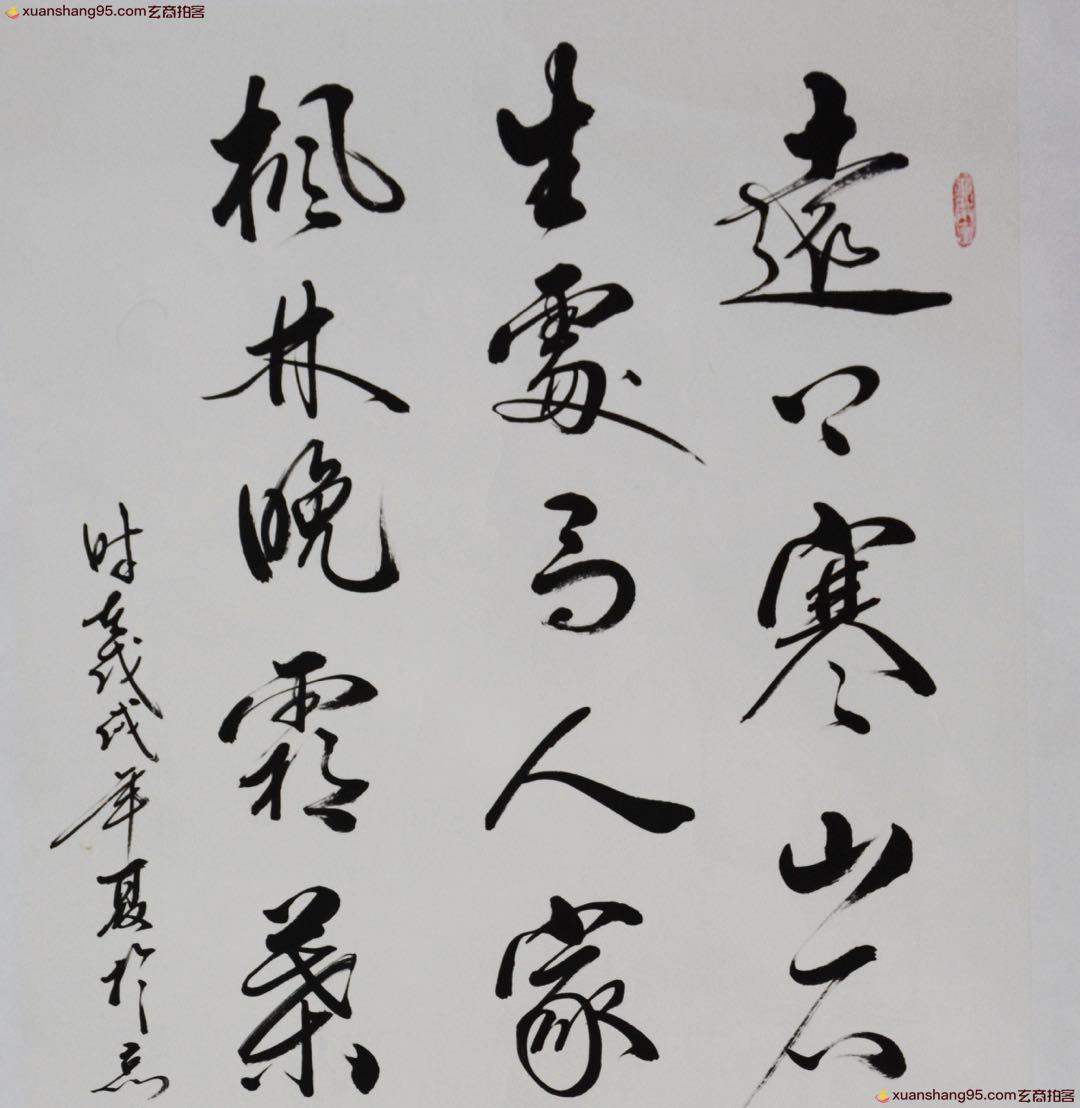 xuanshang95.com玄商拍客
遠上寒山石
生處有人家
楓林晚霜葉
时在戊戌年夏於京
xuanshang95.com玄商拍客